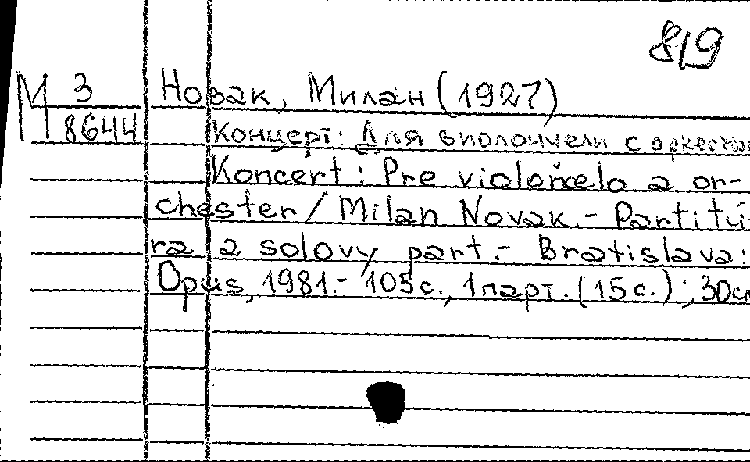 819
М 3
8644
Новак, Милан (1927)
Концерт: Для виолончели с оркестро
Koncert: Pre violončelo a or-
chester / Milan Novak. - Partitú-
ra a solovy part. - Bratislava:
Opus, 1981. - 105 с., 1 парт. (15 с.); 30см